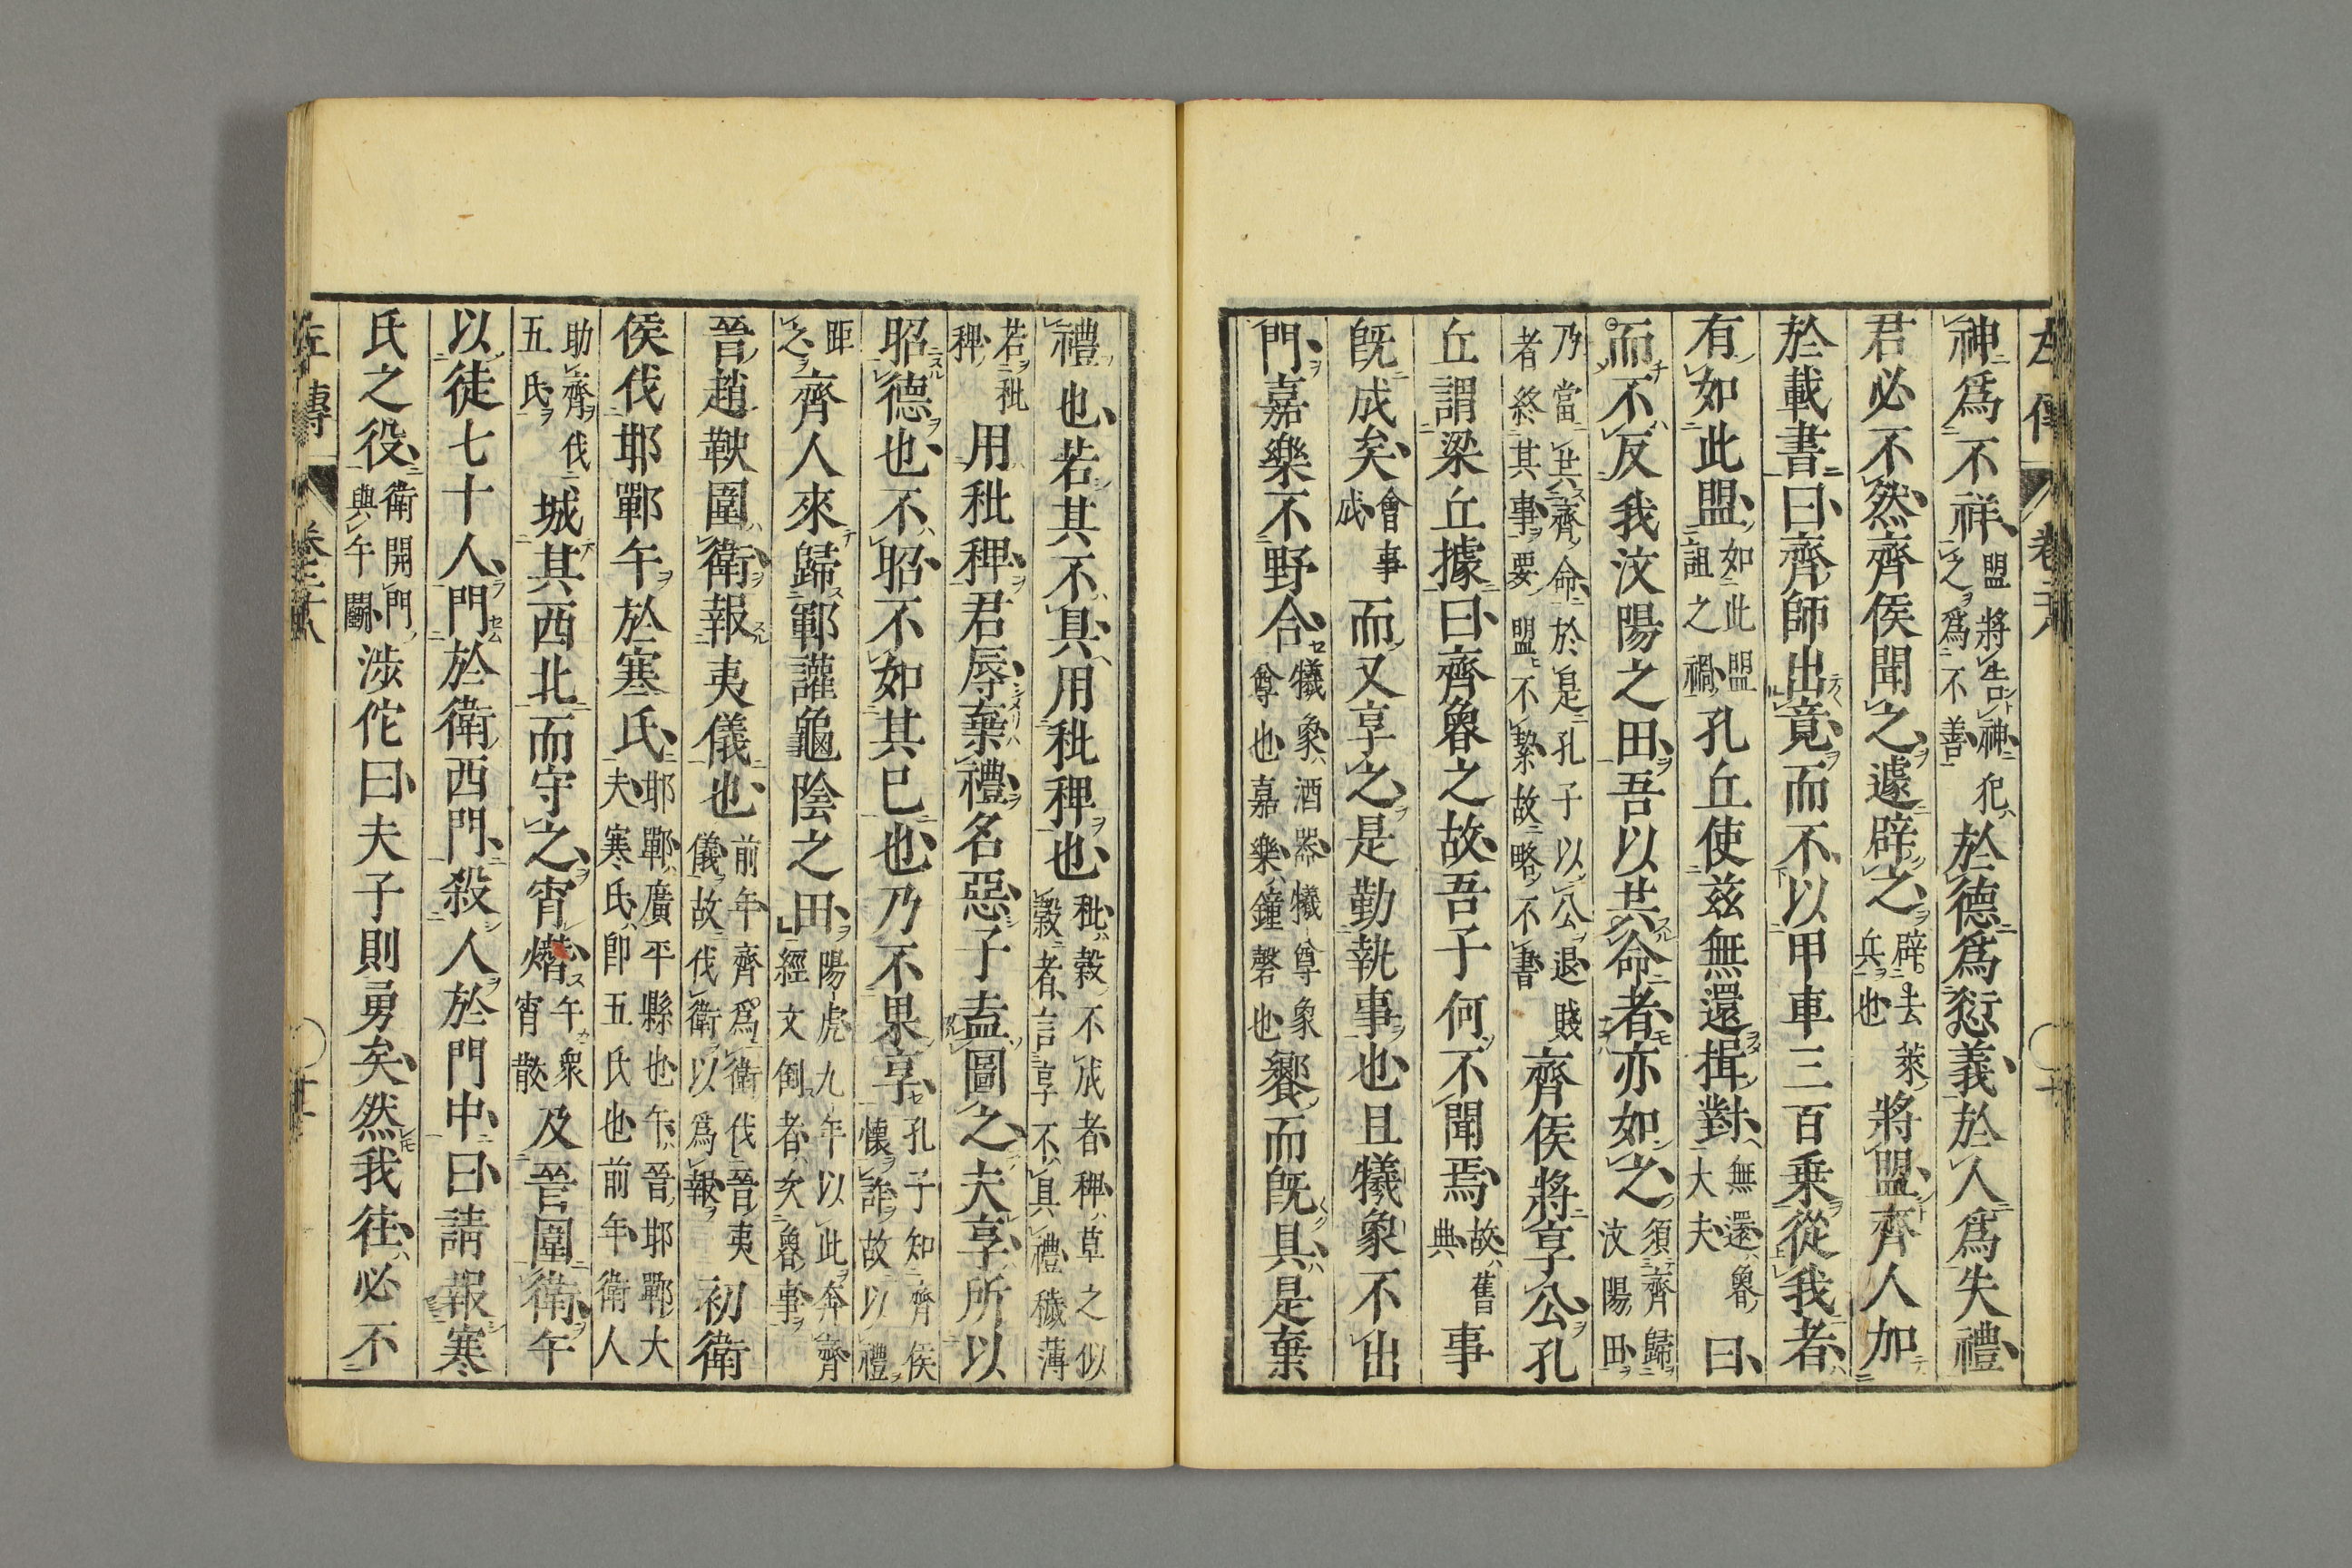 左傳 卷二十八
神爲不祥盟將告神犯之爲不善於德爲愆義於人爲失禮
君必不然齊侯聞之遽辟之辟去萊兵也將盟齊人加
於載書曰齊師出竟而不以甲車三百乗從我者
有如此盟如此盟詛之禍孔丘使兹無還揖對無還魯大夫曰
而不反我汶陽之田吾以共命者亦如之須齊歸汶陽田
乃當共齊命於是孔子以公退賤者終其事要盟不絜故略不書齊侯將享公孔
丘謂梁丘據曰齊魯之故吾子何不聞焉故舊典事
旣成矣會事成而又享之是勤執事也且犧象不出
門嘉樂不野合犧象酒器犧尊象尊也嘉樂鐘磬也饗而旣具是棄
禮也若其不具用秕稗也秕穀不成者稗草之似穀者言享不具禮穢薄
若秕稗用秕稗君辱棄禮名惡子盍圖之夫享所以
昭德也不昭不如其已也乃不果享孔子知齊侯懷詐故以禮
距之齊人來歸鄆讙龜陰之田陽虎九年以此奔齊經文倒者次魯事
晉趙鞅圍衛報夷儀也前年齊爲衛伐晉夷儀故伐衛以爲報初衛
侯伐邯鄲午於寒氏邯鄲廣平縣也午晉邯鄲大夫寒氏卽五氏也前年衛人
助齊伐五氏城其西北而守之宵熸午衆宵散及晉圍衛午
以徒七十人門於衛西門殺人於門中曰請報寒
氏之役衛開門與午鬭涉佗曰夫子則勇矣然我往必不
左傳 卷二十八